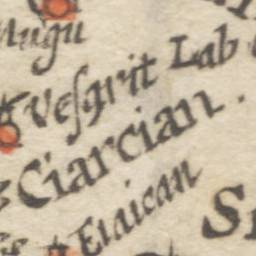 Nugu
Vesgrit Lab
Ciarcian.
Elaican